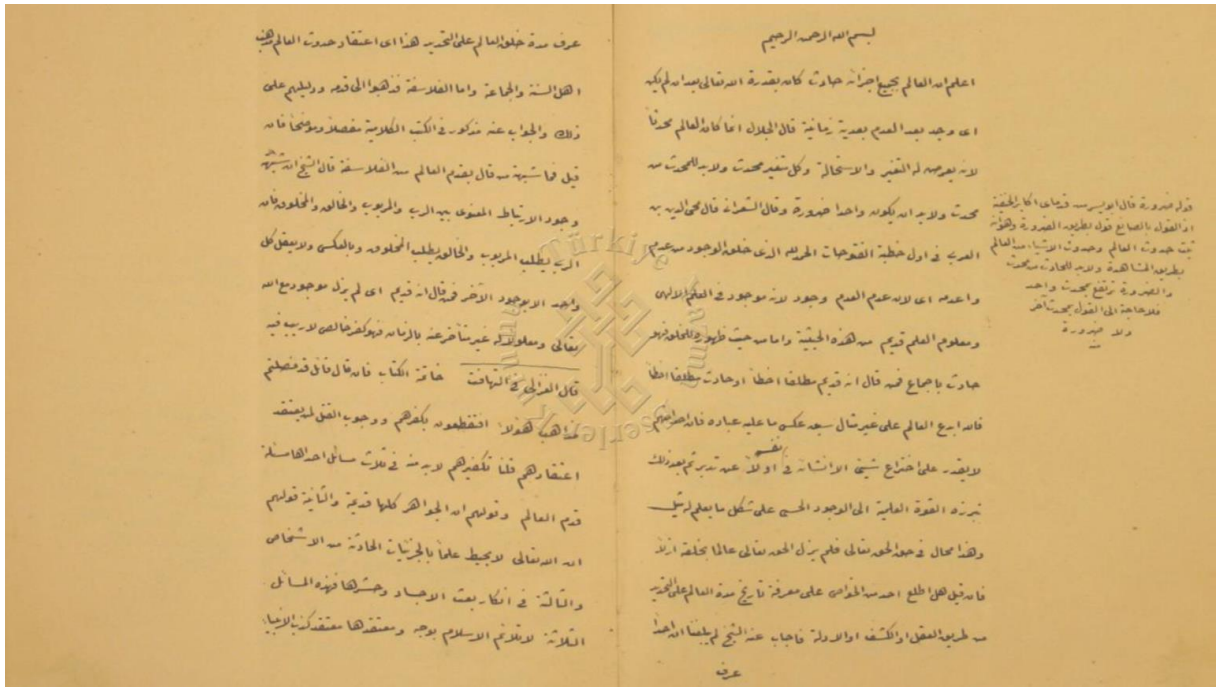 بسم الله الرحمن الرحيم
اعلم ان العالم بجميع اجزائه حادث كان بقدرة الله تعالى بعد ان لم يكن
اى وجد بعد العدم بعدية زمانية قال الجلال انما كان العالم محدثا
لانه يعرض له التغير والاستحالة وكل متغير محدث ولابد للمحدث من
محدث ولابد ان يكون واحدا ضرورة وقال الشعرانى قال محى الدين بن
العربى فى اول خطبة الفتوحات الحمد لله الذى خلق الوجود من عدم
واعدمه اى لان عدم العدم وجود لانه موجود فى العلم الالهى
ومعلوم العلم قديم من هذه الحيثية واما من حيث ظهوره للخلق فهو
حادث باجماع فمن قال انه قديم مطلقا اخطأ او حادث مطلقا اخطأ
فالله ابدع العالم على غير مثال سبق عكس ما عليه عباده فان احدا منهم
لا يقدر على اختراع شيئ الا انشائه فى نفسه اولا عن تدبر ثم بعد ذلك
تبرزه القوة العلمية الى الوجود الحسى على شكل ما يعلم له مثل
وهذا محال فى حق الحق تعالى فلم يزل الحق تعالى عالما بخلقه ازلا
فان قيل هل اطلع احد من الخواص على معرفة تاريخ مدة العالم على التحديد
من طريق العقل او الكشف او الادلة فاجاب عنه الشيخ لم يبلغنا ان احدا
عرف
قوله ضرورة قال ابو اليسر من قدماى اكابر الحنفية
اذ القول بالصانع قول بطريق الضرورة وهو انه
ثبت حدوث العالم وحدوث الاشياء من العالم
بطريق المشاهدة ولابد للحادث من محدث
والضرورة ترتفع بمحدث واحد
فلا حاجة الى القول بمحدث آخر
ولا ضرورة
عرف مدة خلق العالم على التحديد هذا اى اعتقاد حدوث العالم مذهب
اهل السنة والجماعة واما الفلاسفة فذهبوا الى قدمه ودليلهم على
ذلك والجواب عنه مذكور فى الكتب الكلامية مفصلا وموضحا فان
قيل فما شبهة من قال بقدم العالم من الفلاسفة قال الشيخ ان شبهتهم
وجود الارتباط المعنوى بين الرب والمربوب والخالق والمخلوق فان
الرب يطلب المربوب والخالق يطلب المخلوق وبالعكس ولا يعقل كل
واحد الا بوجود الآخر فمن قال انه قديم اى لم يزل موجود مع الله
تعالى ومعلولا له غير متأخر عنه بالزمان فهو كفر خالص لا ريب فيه
قال الغزالى فى التهافت خاتمة الكتاب فان قال قائل قد فصلتم
مذاهب هؤلاء افتقطعون بكفرهم ووجوب القتل لمن يعتقد
اعتقادهم قلنا تكفيرهم لابد منه فى ثلاث مسائل احداها مسئلة
قدم العالم وقولهم ان الجواهر كلها قديمة والثانية قولهم
ان الله تعالى لا يحيط علما بالجزئيات الحادثة من الاشخاص
والثالثة فى انكار بعث الاجساد وحشرها فهذه المسائل
الثلاثة لا تلائم الاسلام بوجه ومعتقدها معتقد كذب الانبياء